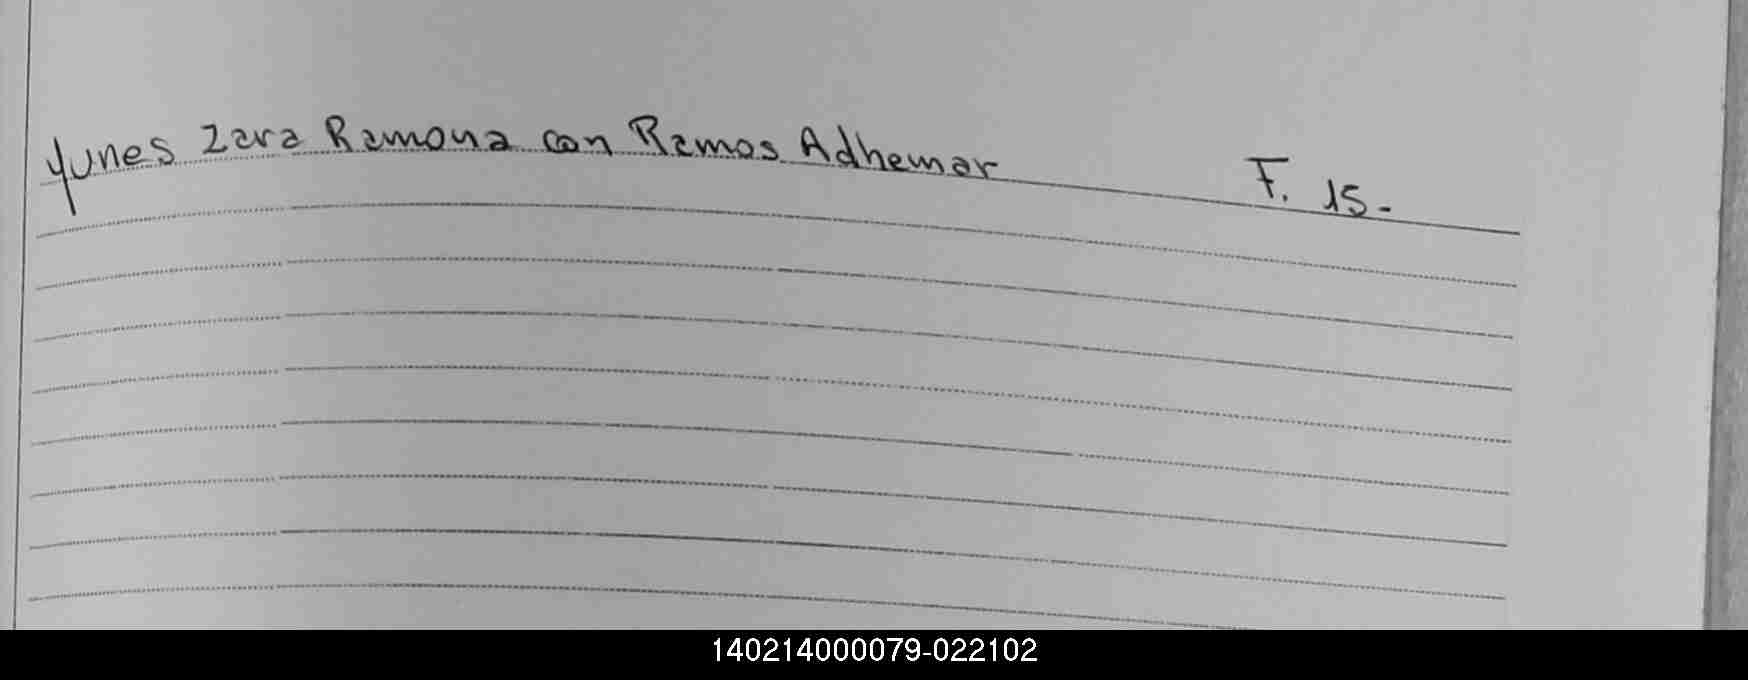 Yunes Zara Ramona con Ramos Adhemar F. 15-
140214000079-022102